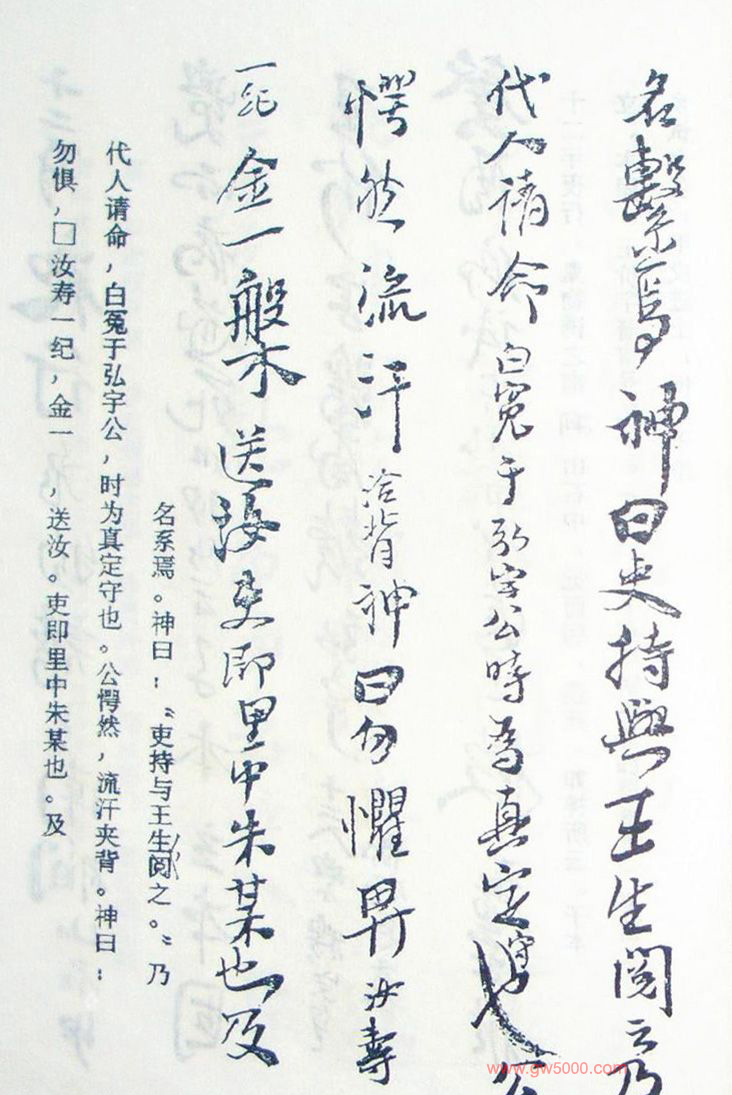 名繫焉神曰吏持與王生閱之乃
代人请命白冤于弘宇公時為真定守也公
愕然流汗浹背神曰勿懼畀汝壽
一紀金一槃水送汝吏即里中朱某也及
名系焉。神曰：“吏持与王生阅之。”乃
代人请命，白冤于弘宇公，时为真定守也。公愕然，流汗夹背。神曰：
勿惧，□汝寿一纪，金一　，送汝。吏即里中朱某也。及
www.gw5000.com